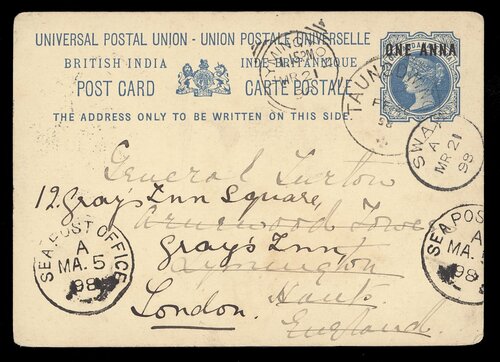 UNIVERSAL POSTAL UNION - UNION POSTALE UNIVERSELLE
BRITISH INDIA INDE BRITANNIQUE
POST CARD CARTE POSTALE
THE ADDRESS ONLY TO BE WRITTEN ON THIS SIDE.
ONE ANNA
MR 21
TAUN
SWAY
A
MR 21
98
General Turton
12, Gray's Inn Square,
Arnewood Tower
Gray's Inn
Lymington
London. Hants.
England
SEA POST OFFICE
A
MA. 5
98
SEA POS
A
MA.
98